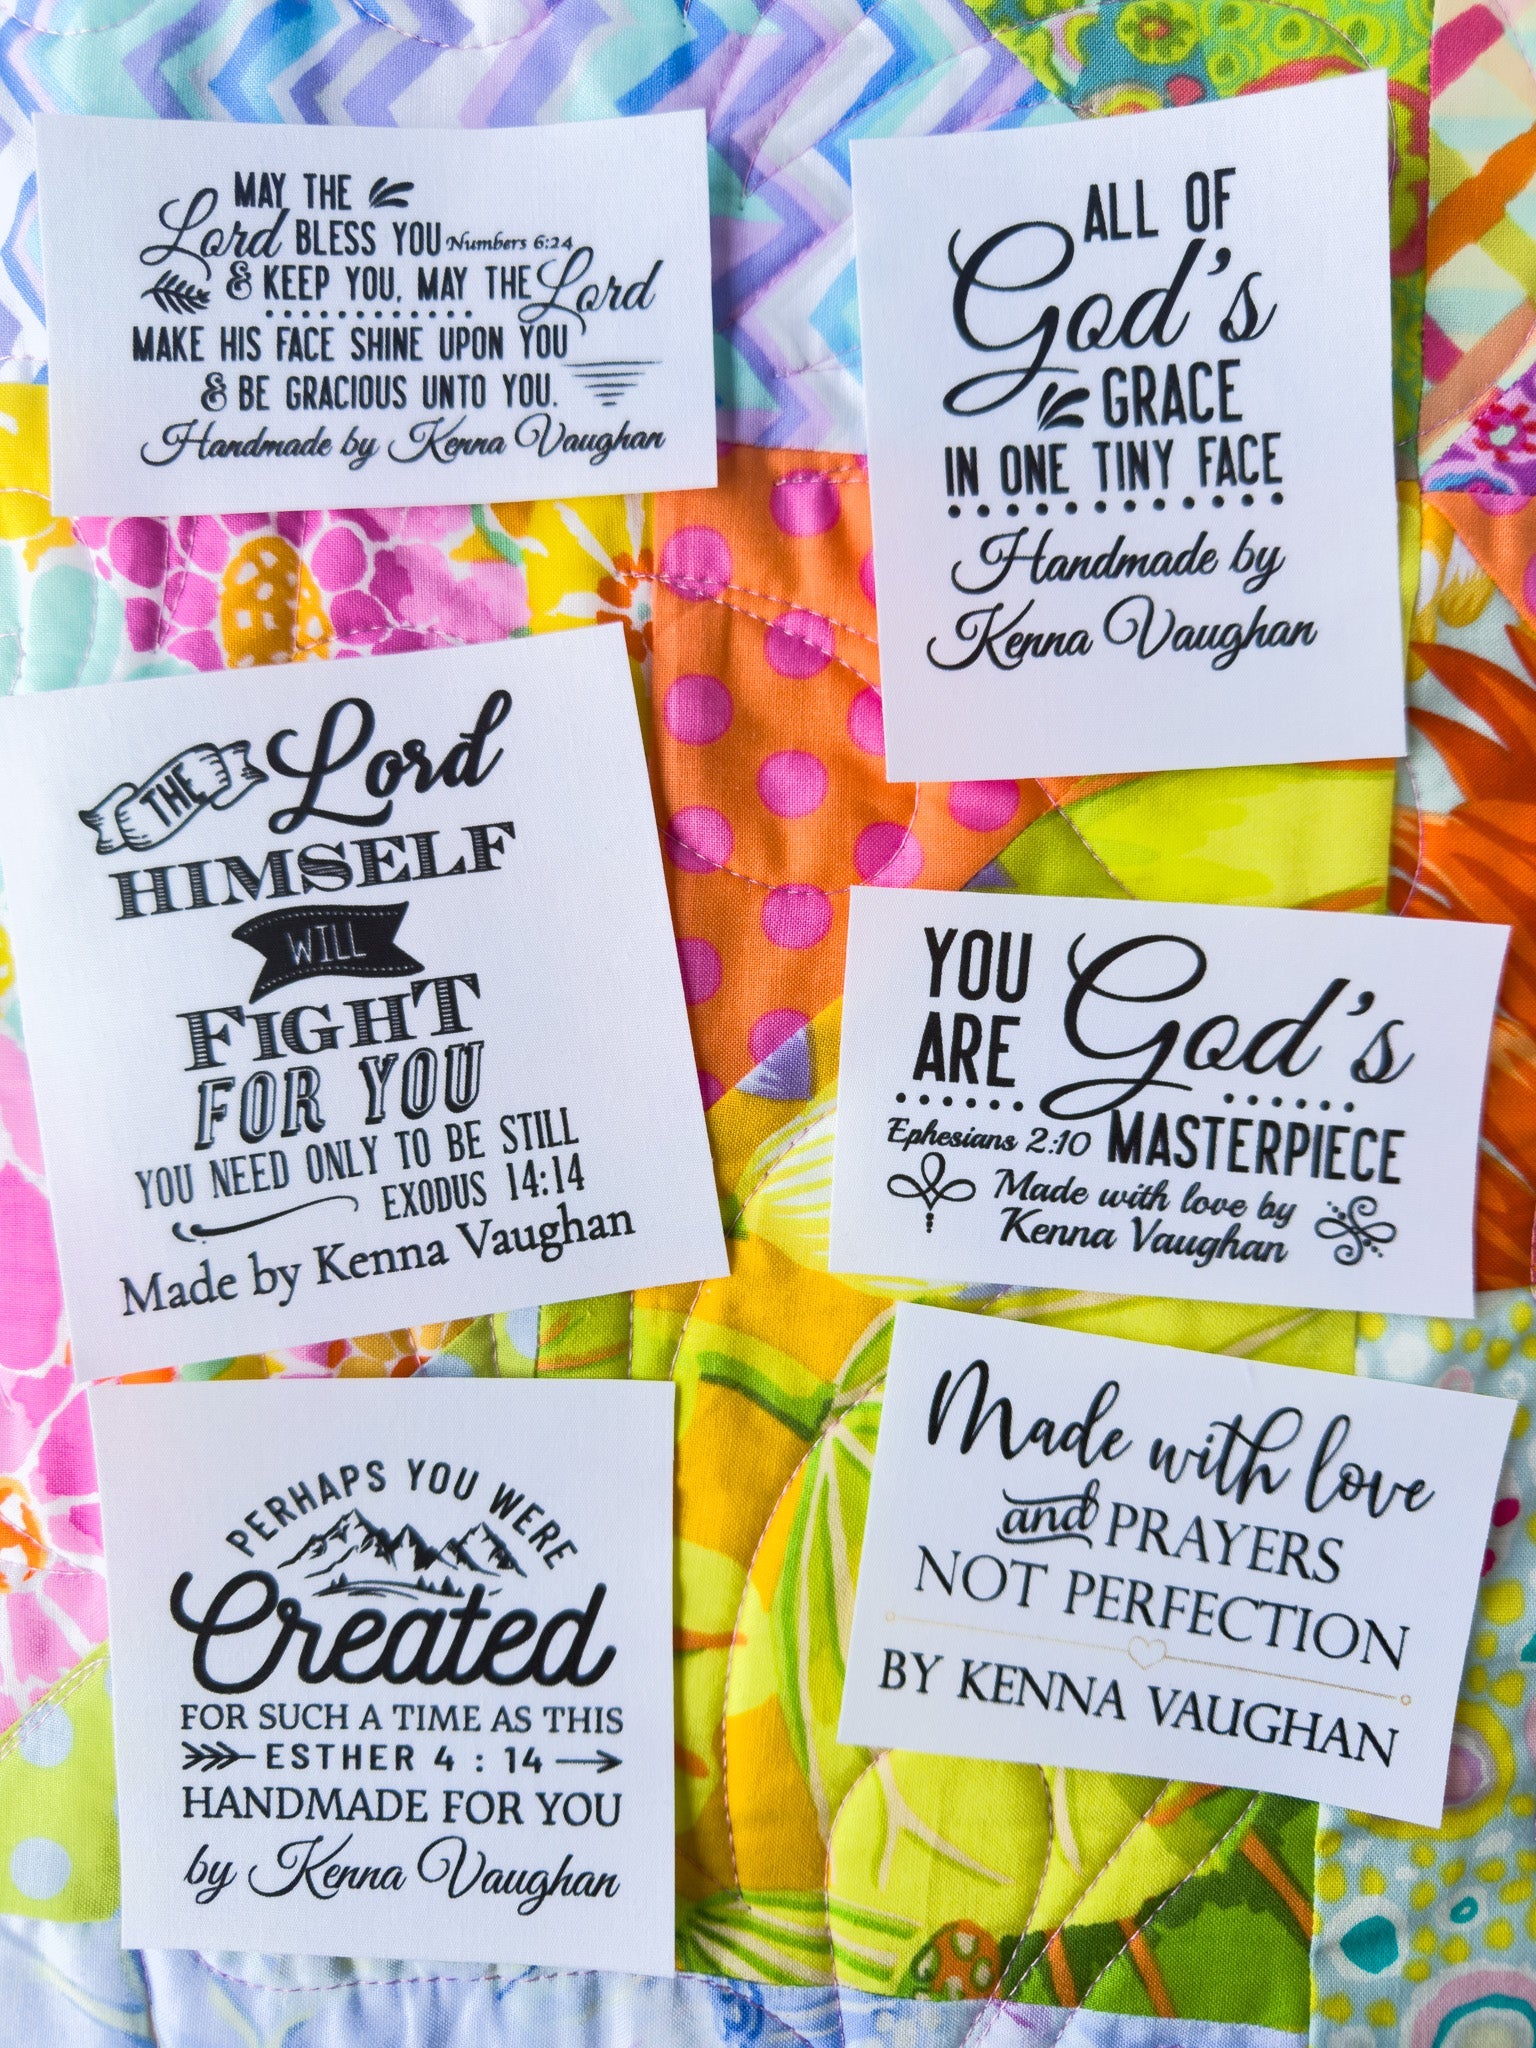 MAY THE
Lord BLESS YOU Numbers 6:24
& KEEP YOU, MAY THE Lord
MAKE HIS FACE SHINE UPON YOU
& BE GRACIOUS UNTO YOU.
Handmade by Kenna Vaughan
ALL OF
God's
GRACE
IN ONE TINY FACE
Handmade by
Kenna Vaughan
THE Lord
HIMSELF
WILL
FIGHT
FOR YOU
YOU NEED ONLY TO BE STILL
EXODUS 14:14
Made by Kenna Vaughan
YOU
ARE God's
Ephesians 2:10 MASTERPIECE
Made with love by
Kenna Vaughan
PERHAPS YOU WERE
Created
FOR SUCH A TIME AS THIS
ESTHER 4 : 14
HANDMADE FOR YOU
by Kenna Vaughan
Made with love
and PRAYERS
NOT PERFECTION
BY KENNA VAUGHAN